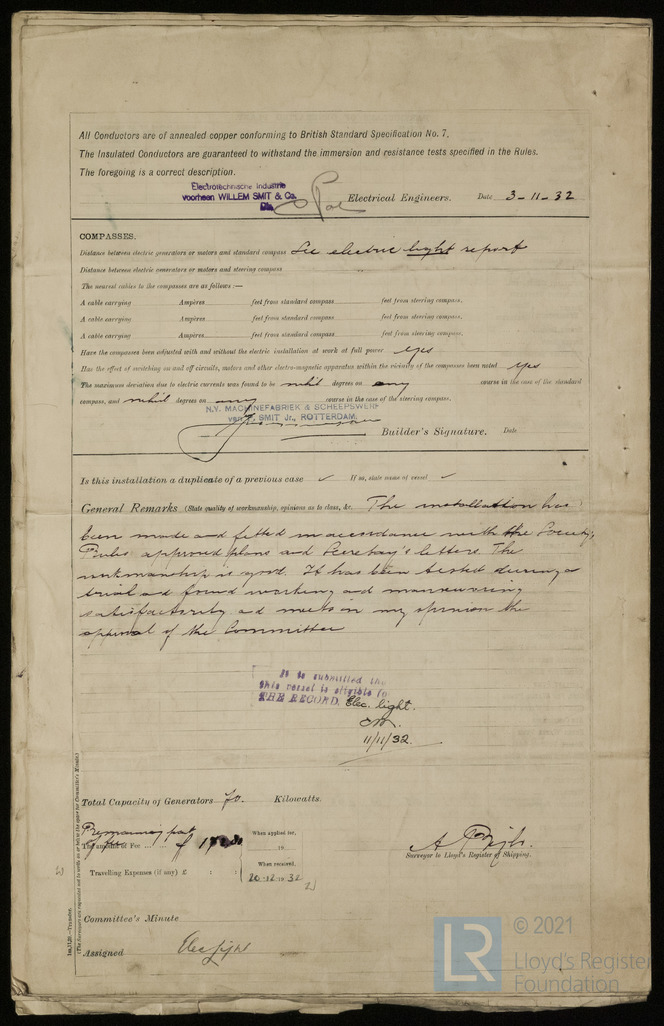 All Conductors are of annealed copper conforming to British Standard Specification No. 7.
The Insulated Conductors are guaranteed to withstand the immersion and resistance tests specified in the Rules.
The foregoing is a correct description.
Electrotechnische Industrie
voorheen WILLEM SMIT & Co.
Electrical Engineers. Date 3-11-32
COMPASSES.
Distance between electric generators or motors and standard compass See electric light report
Distance between electric generators or motors and steering compass
The nearest cables to the compasses are as follows:—
A cable carrying Ampères feet from standard compass feet from steering compass.
A cable carrying Ampères feet from standard compass feet from steering compass.
A cable carrying Ampères feet from standard compass feet from steering compass.
Have the compasses been adjusted with and without the electric installation at work at full power yes
Has the effect of switching on and off circuits, motors and other electro-magnetic apparatus within the vicinity of the compasses been noted yes
The maximum deviation due to electric currents was found to be nihil degrees on any course in the case of the standard
compass, and nihil degrees on any course in the case of the steering compass.
N.V. MACHINEFABRIEK & SCHEEPSWERF
van P. SMIT Jr., ROTTERDAM.
Builder's Signature. Date
Is this installation a duplicate of a previous case ✓ If so, state name of vessel ✓
General Remarks (State quality of workmanship, opinions as to class, &c. The installation has
been made and fitted in accordance with the Society's
Rules approved plans and Secretary's letters. The
workmanship is good. It has been tested during a
trial ad found working ad manœuvring
satisfactority ad meets in my opinion the
approval of the Committee
It is submitted that
this vessel is eligible for
THE RECORD. Elec. light.
11/11/32.
Total Capacity of Generators 70. Kilowatts.
The amount of Fee ... ... f
When applied for,
19
Travelling Expenses (if any) £ : :
When received,
20-12-19 32
Surveyor to Lloyd's Register of Shipping.
Committee's Minute
Assigned Elec Light
1m,11,30.—Transfer.
(The Surveyors are requested not to write on or below the space for Committee's Minute.)
© 2021
LR
Lloyd's Register
Foundation